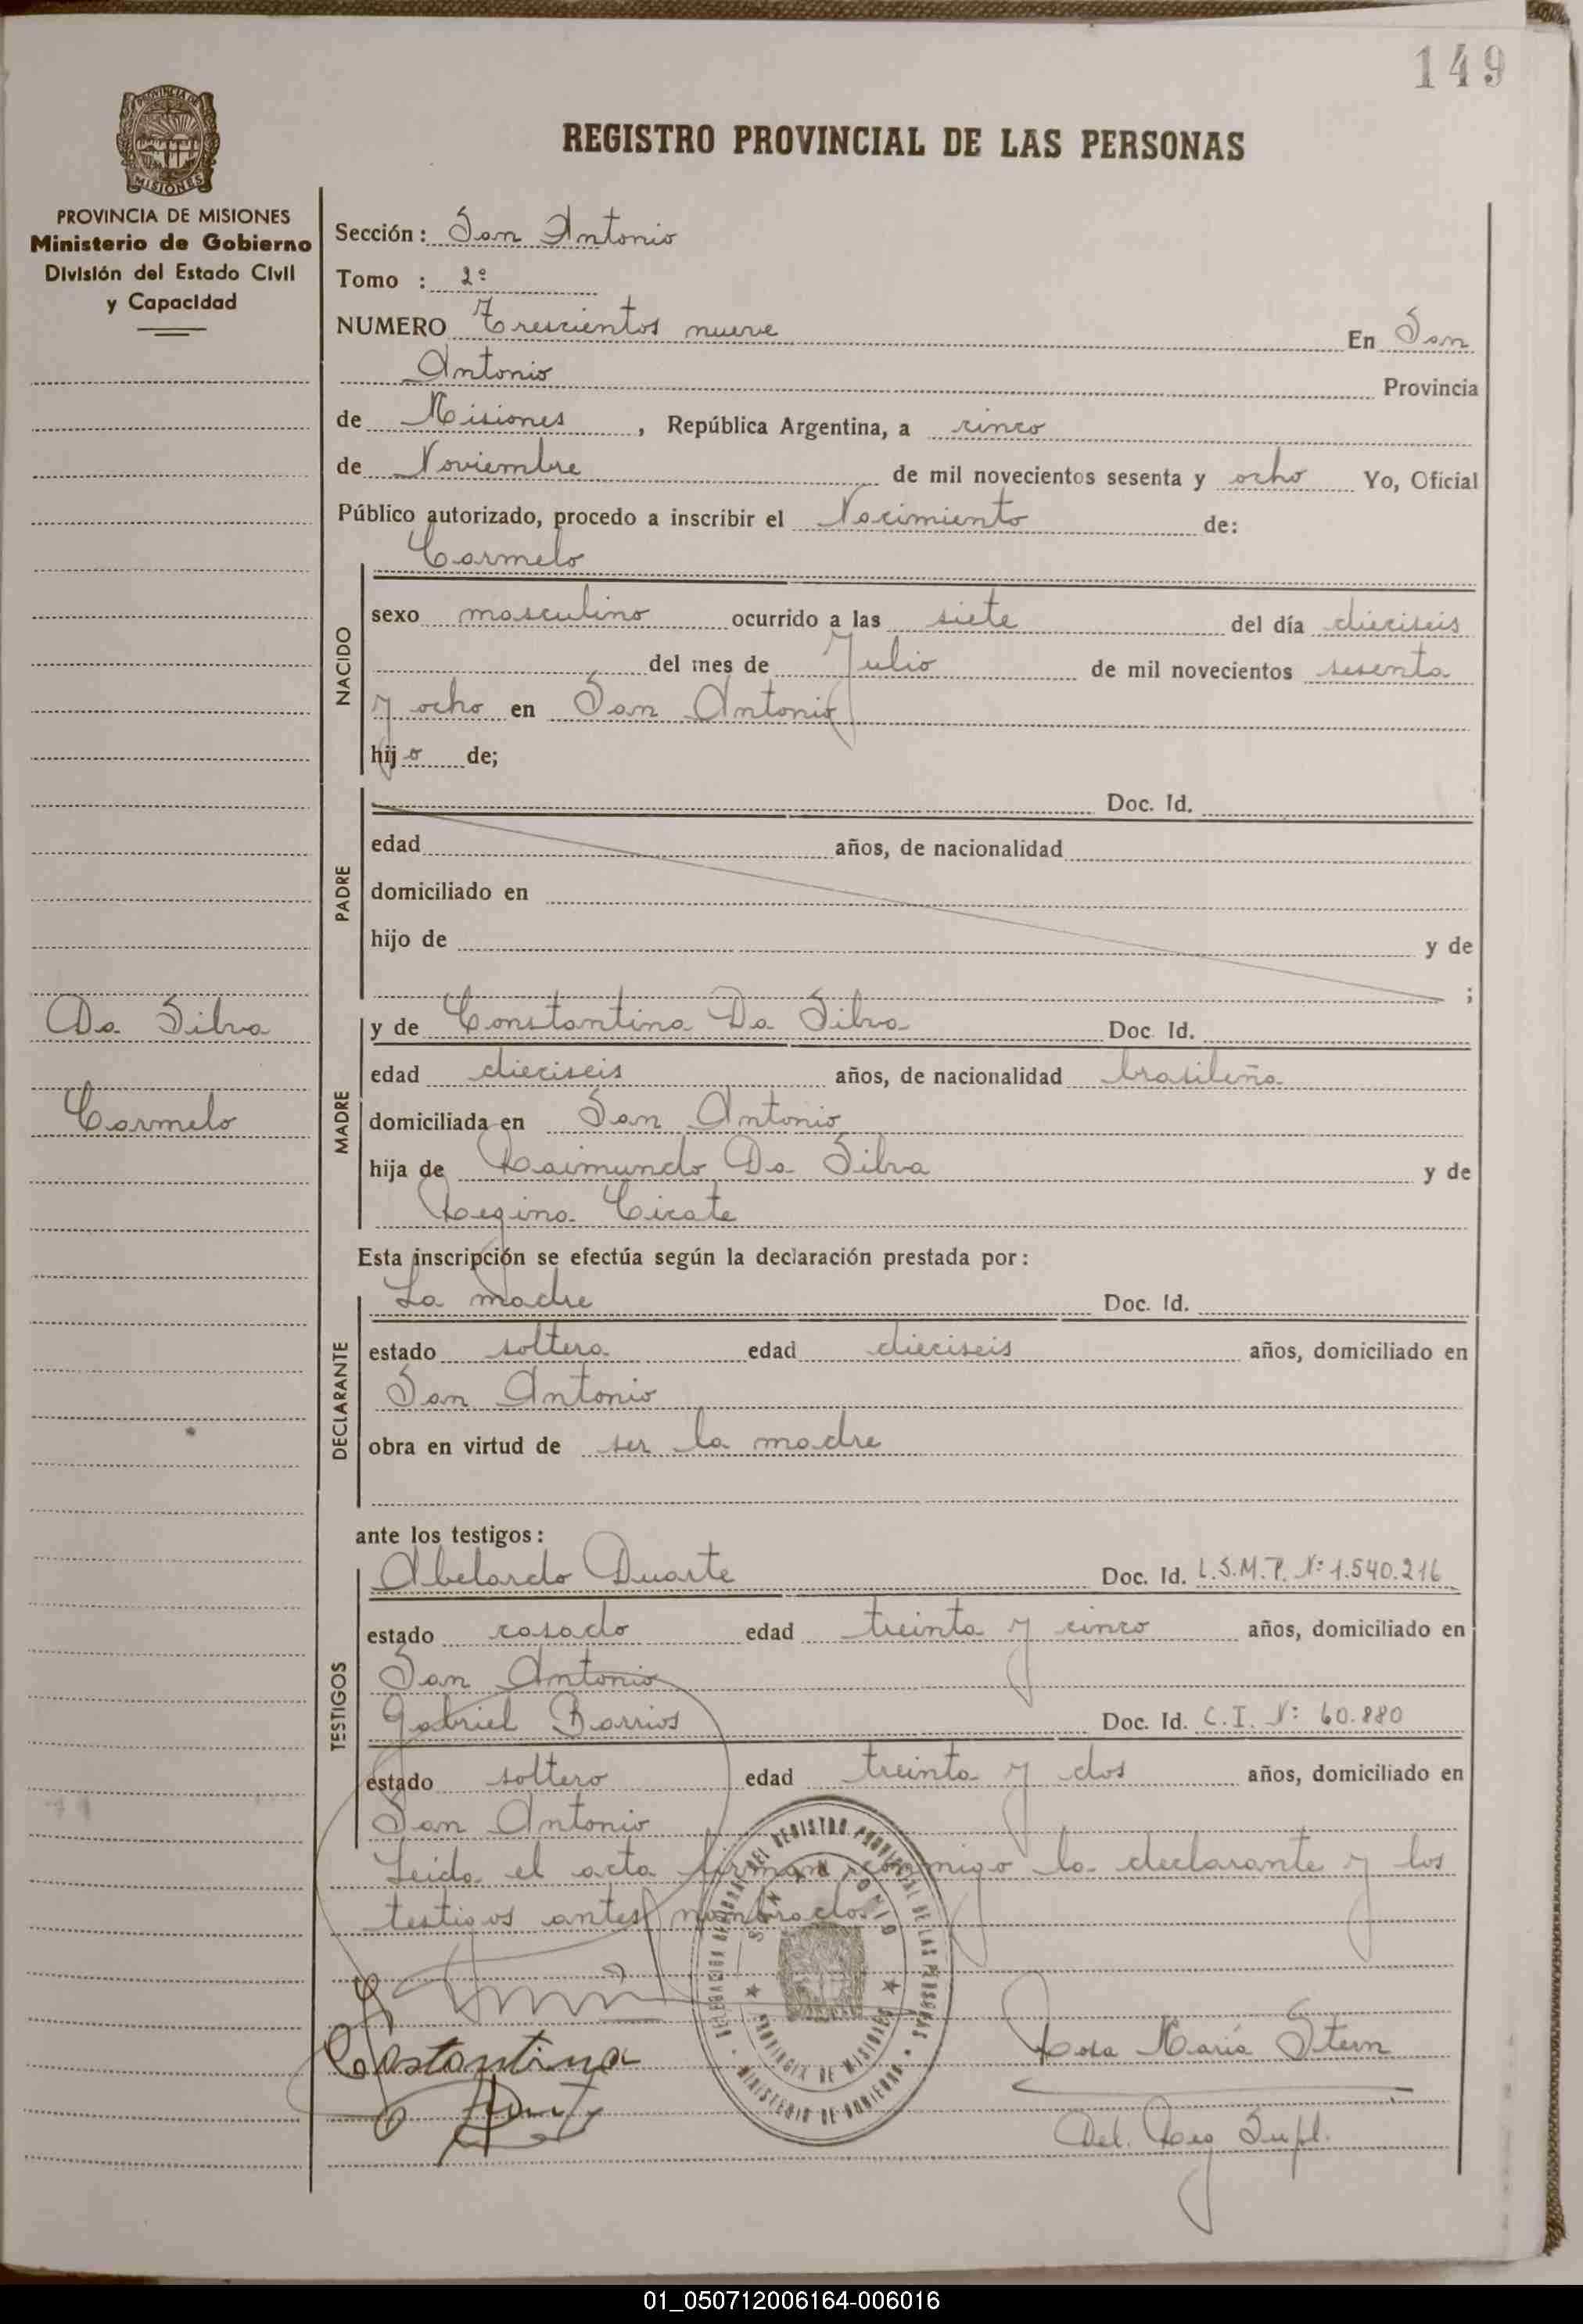 149
REGISTRO PROVINCIAL DE LAS PERSONAS
PROVINCIA DE MISIONES
Ministerio de Gobierno
División del Estado Civil
y Capacidad
Sección: San Antonio
Tomo : 2º
NUMERO Trescientos nueve En San
Antonio Provincia
de Misiones, República Argentina, a cinco
de Noviembre de mil novecientos sesenta y ocho Yo, Oficial
Público autorizado, procedo a inscribir el Nacimiento de:
Carmelo
NACIDO
sexo masculino ocurrido a las siete del día dieciseis
del mes de Julio de mil novecientos sesenta
y ocho en San Antonio
hijo de;
PADRE
Doc. Id.
edad años, de nacionalidad
domiciliado en
hijo de y de
;
Da Silva
Carmelo
MADRE
y de Constantina Da Silva Doc. Id.
edad dieciseis años, de nacionalidad brasileña
domiciliada en San Antonio
hija de Raimundo Da Silva y de
Regina Cicate
Esta inscripción se efectúa según la declaración prestada por:
DECLARANTE
La madre Doc. Id.
estado soltera edad dieciseis años, domiciliado en
San Antonio
obra en virtud de ser la madre
ante los testigos:
TESTIGOS
Abelardo Duarte Doc. Id. L.S.M.P. Nº 1.540.216
estado casado edad treinta y cinco años, domiciliado en
San Antonio
Gabriel Barrios Doc. Id. C.I. Nº 60.880
estado soltero edad treinta y dos años, domiciliado en
San Antonio
Leida el acta firman conmigo la declarante y los
testigos antes nombrados.
DEL REGISTRO PROVINCIAL DE LAS PERSONAS
SAN ANTONIO
PROVINCIA DE MISIONES
MINISTERIO DE GOBIERNO
Costantina
Rosa María Stern
Del. Reg Supl.
01_050712006164-006016